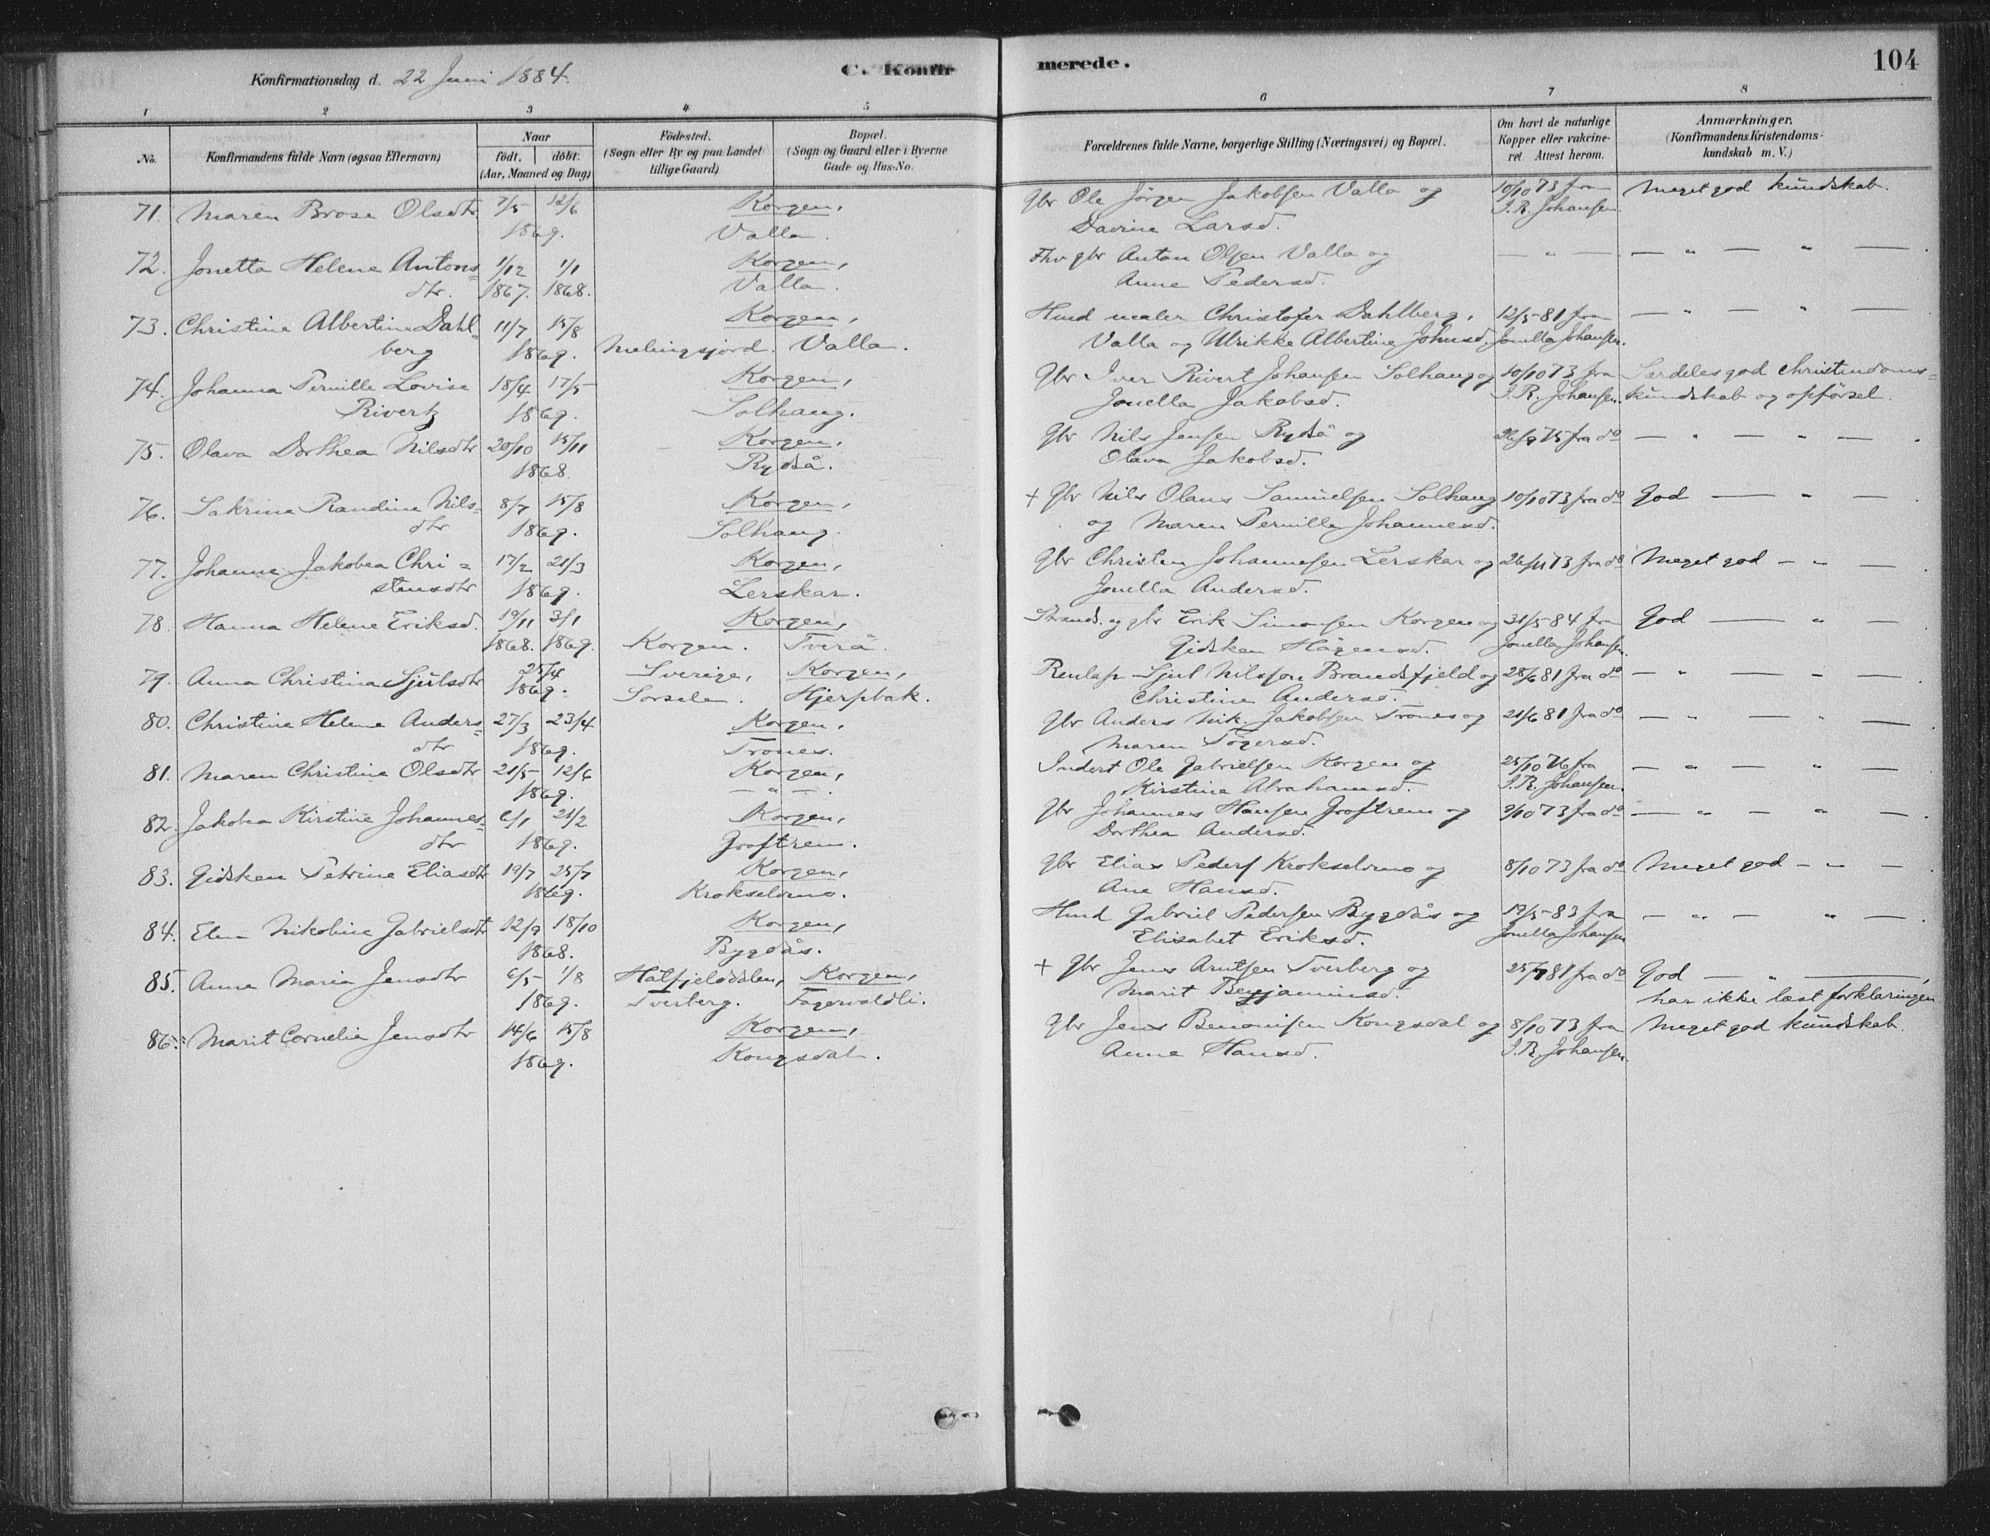 Konfirmationsdag d. 22 Juni 1884.
C. Konfirmerede.
104
1 2 3 4 5 6 7 8
No.
Konfirmandens fulde Navn (ogsaa Efternavn)
Naar
født. døbt.
(Aar, Maaned og Dag)
Fødested.
(Sogn eller By og paa Landet
tillige Gaard)
Bopæl.
(Sogn og Gaard eller i Byerne
Gade og Hus-No.
Forældrenes fulde Navne, borgerlige Stilling (Næringsvei) og Bopæl.
Om havt de naturlige
Kopper eller vakcine-
ret. Attest herom.
Anmærkninger.
(Konfirmandens Kristendoms-
kundskab m. V.)
71. Maren Brose Olsdtr 7/5 12/6 Korgen, Gbr Ole Jörgen Jakobsen Valla og 10/10 73 fra Meget god kundskab.
1869. Valla. Davine Larsd. I.R. Johansen.
72. Jonetta Helene Antons- 1/12 1/1 Korgen, Fhv gbr Anton Olsen Valla og — " — — " — " —
dtr. 1867. 1868. Valla. Anne Pedersd.
73. Christine Albertine Dahl- 11/7 15/8 Korgen, Hmd maler Christofer Dahlberg, 12/5-81 fra — " — " —
berg 1869. Valla. Valla og Ulrikke Albertine Johnsd. Jonella Johansen.
74. Johanna Pernille Lovise 18/4 17/5 Korgen, Gbr Iver Rivert Johansen Solhaug og 10/10 73 fra Serdeles god christendoms-
Rivertz 1869. Solhaug. Jonella Jakobsd. I.R. Johansen. kundskab og opförsel.
75. Olava Dorthea Nilsdtr 20/10 15/11 Korgen, Gbr Nils Jensen Rydså og 26/9 75 fra do — " — " —
1868. Rydså. Olava Jakobsd.
76. Sakrine Randine Nils- 8/7 15/8 Korgen, + Gbr Nils Olaus Samuelsen Solhaug 10/10 73 fra do God — " —
dtr 1869. Solhaug. og Maren Pernille Johannesd.
77. Johanne Jakobea Chri- 17/2 21/3 Korgen, Gbr Christen Johannesen Lerskar og 26/11 73 fra do Meget god — " —
stensdtr 1869. Lerskar. Jonella Andersd.
78. Hanna Helene Eriksd. 19/11 3/1 Korgen, Strands. og gbr Erik Simonsen Korgen og 31/5-84 fra God — " —
1868. 1869. Korgen. Tverå. Gidsken Hågensd. Jonella Johansen.
79. Anna Christina Sjulsdtr 25/4 Sverige, Korgen, Renlap Sjul Nilsson Brandsfjeld og 28/6 81 fra do — " — " —
1869. Sorsele. Hjerpbak. Christine Andersd.
80. Christine Helene Anders- 27/3 23/4 Korgen, Gbr Anders Nik. Jakobsen Trones og 21/6 81 fra do — " — " —
dtr 1869. Trones. Maren Tögersd.
81. Maren Christine Olsdtr 21/5 12/6 Korgen, Inderst Ole Gabrielsen Korgen og 25/10 76 fra — " — " —
1869. — " — Kirstine Abrahamsd. I.R. Johansen.
82. Jakobea Kirstine Johannes- 6/1 21/2 Korgen, Gbr Johannes Hansen Groftrem og 9/10 73 fra do — " — " —
dtr 1869. Groftrem. Dorthea Andersd.
83. Gidsken Petrine Eliasdtr 19/7 25/7 Korgen, Gbr Elias Peders Krokselvmo og 8/10 73 fra do Meget god — " —
1869. Krokselvmo. Ane Hansd.
84. Elen Nikoline Gabrielsdtr 12/9 18/10 Korgen, Hmd Gabriel Pedersen Bygdås og 12/5-83 fra — " — " —
1868. Bygdås. Elisabet Eriksd. Jonella Johansen
85. Anne Maria Jensdtr 6/5 1/8 Hatfjelddalen, Korgen, + Gbr Jens Arntsen Tverberg og 25/7 81 fra do God — " —
1869. Tverberg. Fagervoldli. Marit Benjaminsd. har ikke læst forklaringen
86. Marit Cornelia Jensdtr 14/6 15/8 Korgen, Gbr Jens Benonisen Kongsdal og 8/10 73 fra Meget god kundskab.
1869. Kongsdal. Anne Hansd. I.R. Johansen.